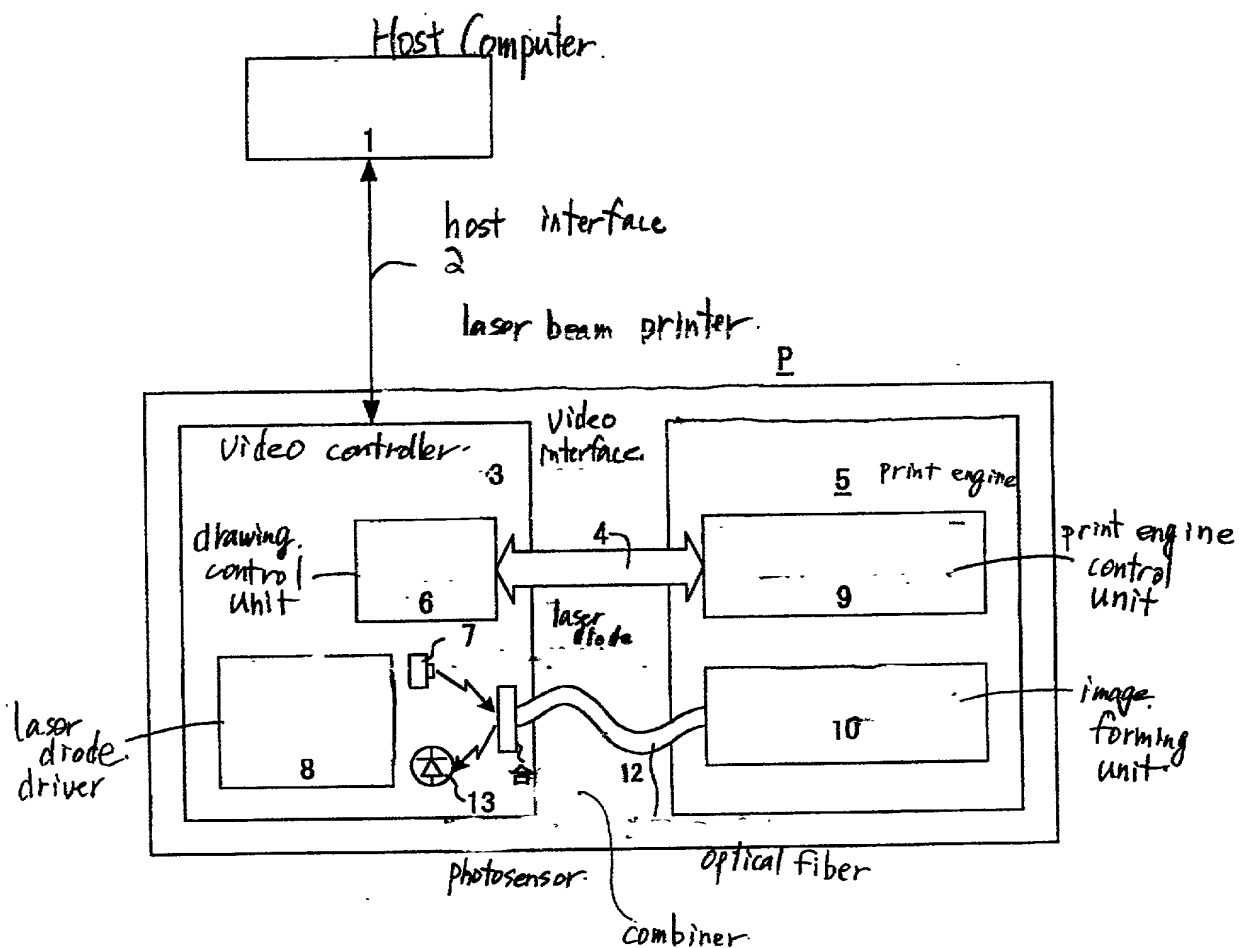 Host Computer.
1
host interface
2
laser beam printer.
P
Video controller.
3
Video
interface.
5 print engine
drawing.
control
unit
6
4
9
print engine
control
unit
7
laser
diode
laser
diode.
driver
8
13
合
12
10
image.
forming
unit.
photosensor.
optical fiber
combiner